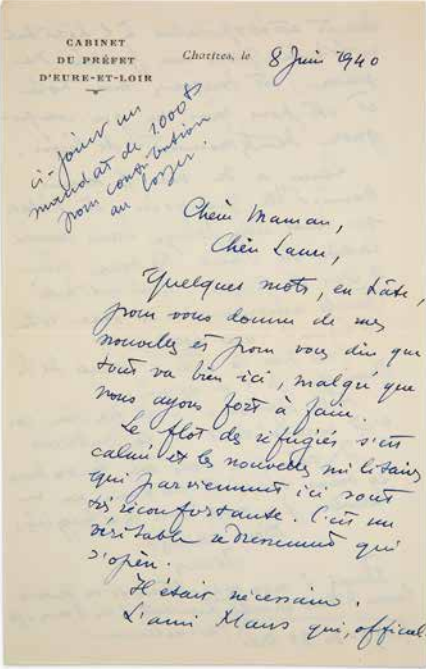 CABINET
DU PRÉFET
D'EURE-ET-LOIR
Chartres, le 8 Juin 1940
ci-joint un
mandat de 1000 f
pour contribution
au loyer.
Chère Maman,
Chère Laure,
Quelques mots, en hâte,
pour vous donner de mes
nouvelles et pour vous dire que
tout va bien ici, malgré que
nous ayons fort à faire.
Le flot des réfugiés s'est
calmé et les nouvelles militaires
qui parviennent ici sont
très réconfortantes. C'est un
véritable redressement qui
s'opère.
Il était nécessaire.
L'ami Mans qui, official